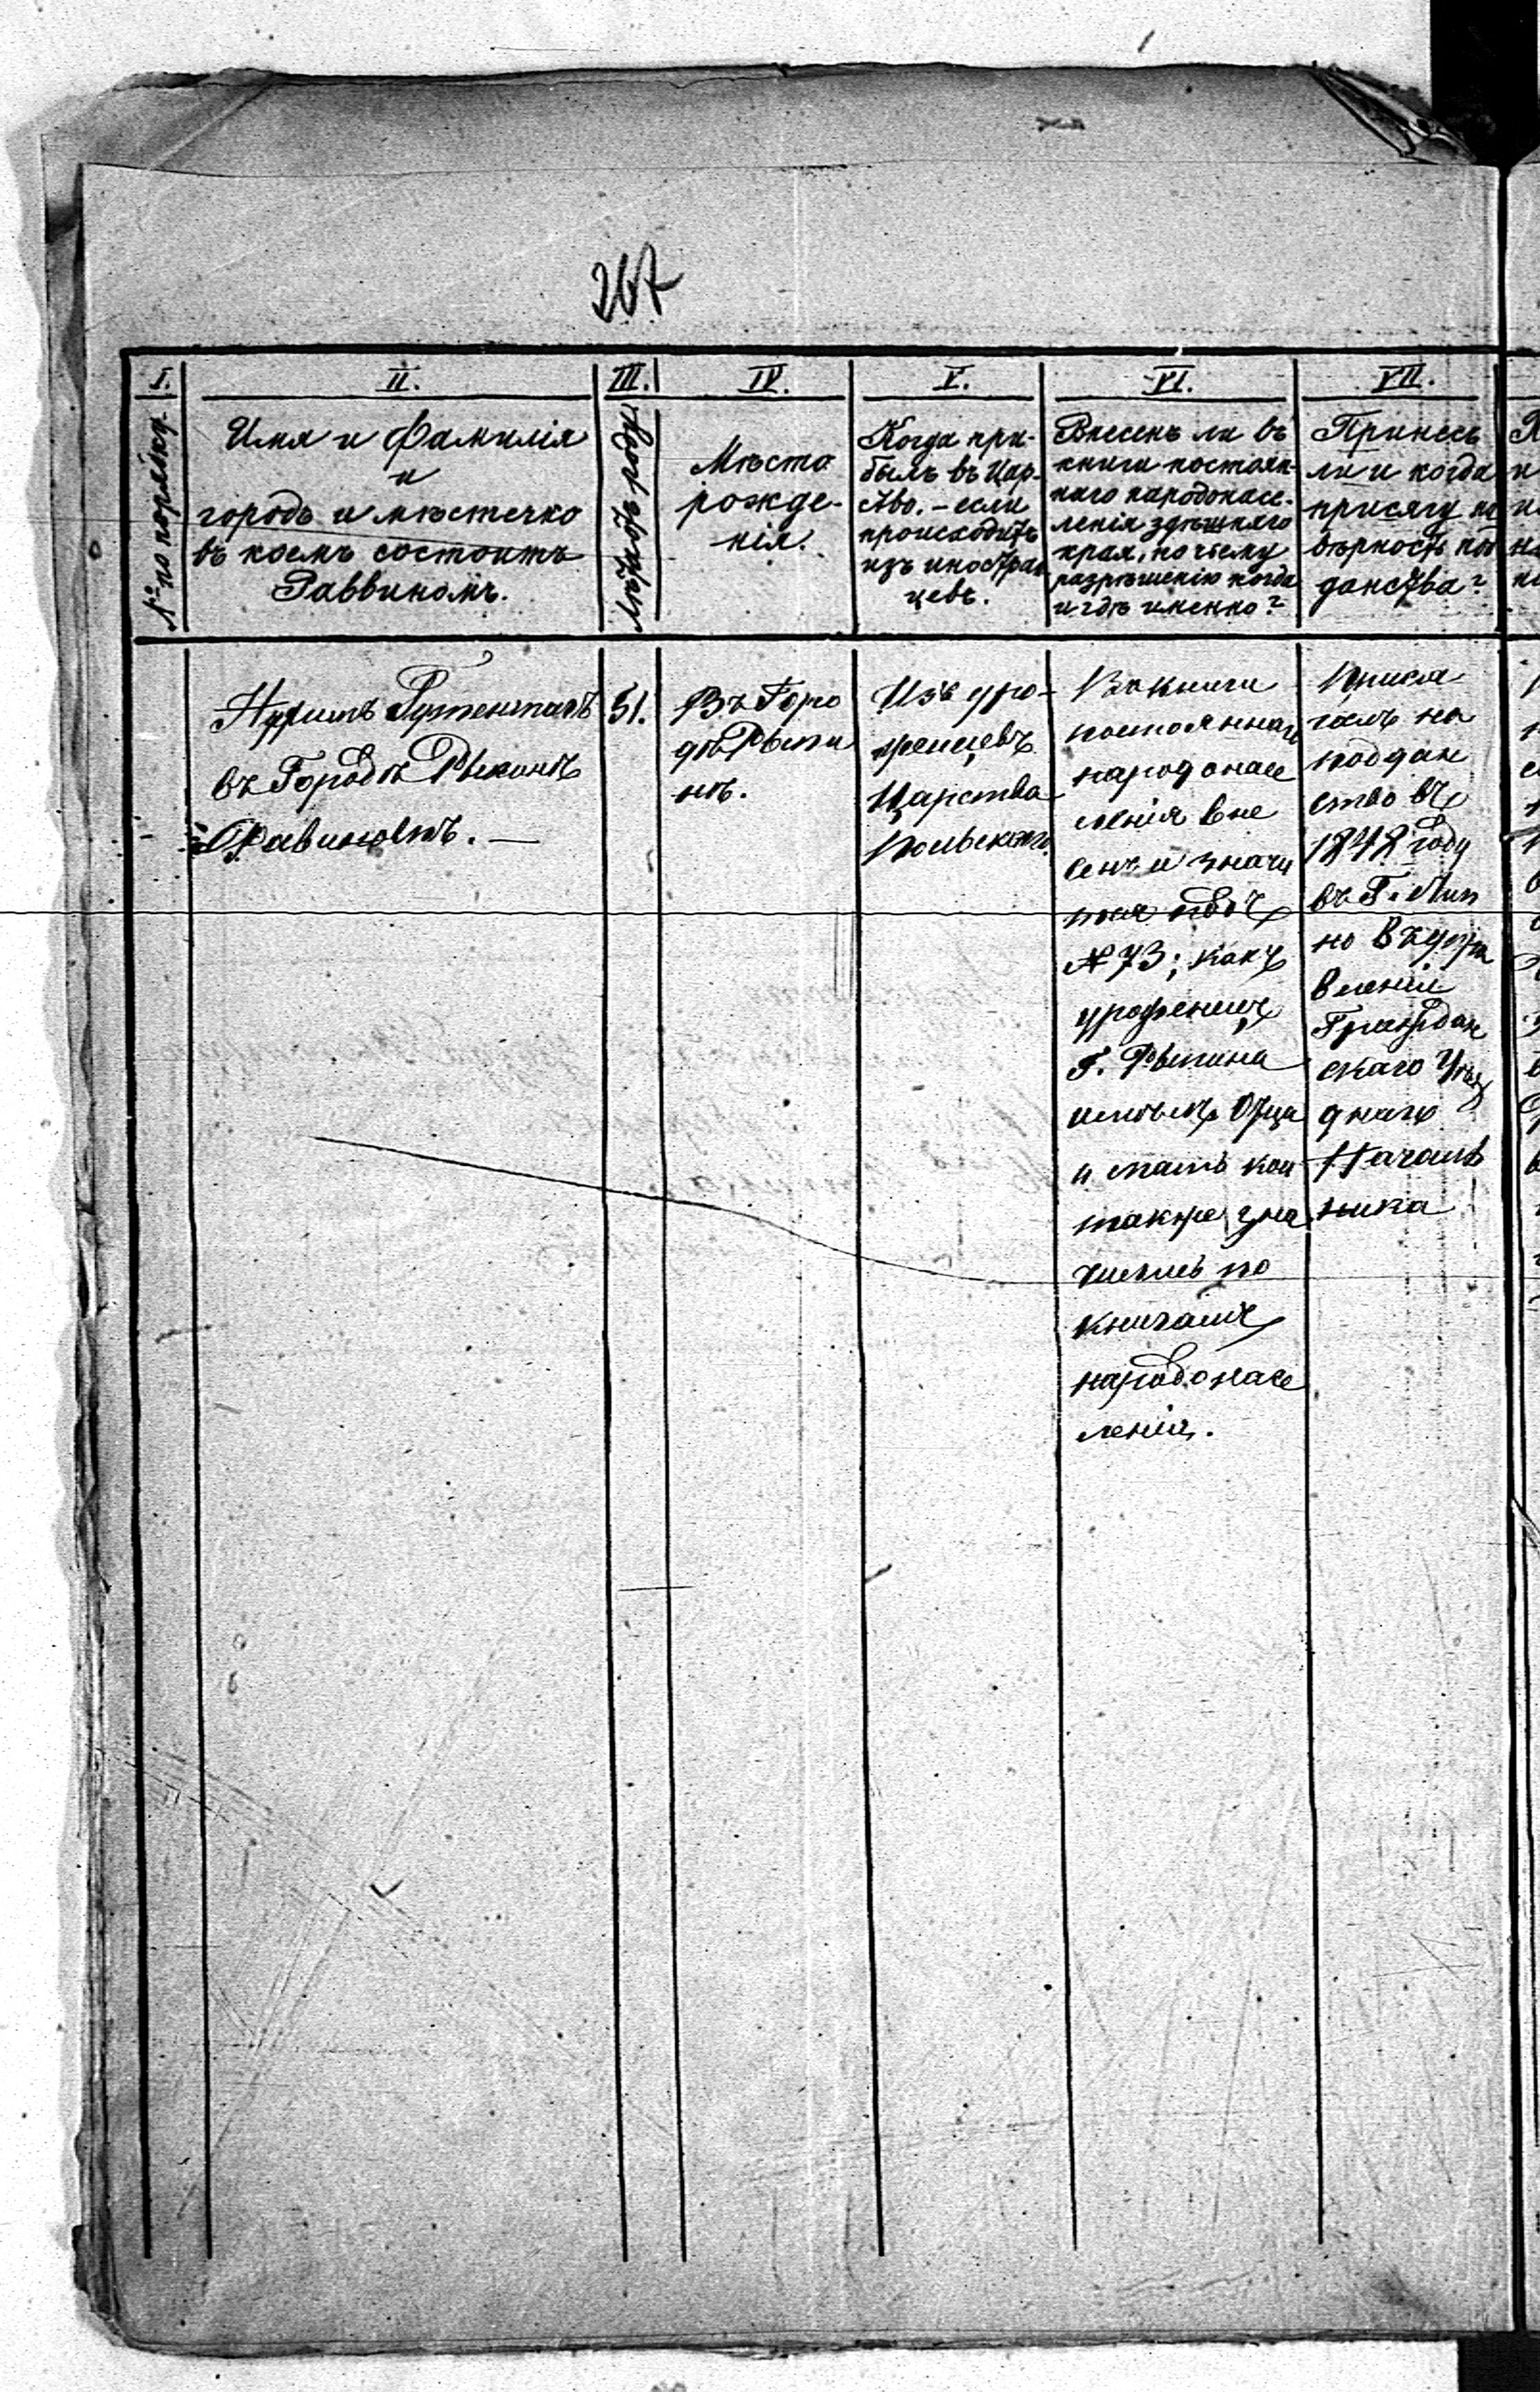 267
I.
№ по порядку.
II.
Имя и Фамилія
и
городъ и мѣстечко
въ коемъ состоитъ
Раввиномъ.
III.
Лѣтъ отъ роду.
IV.
Мѣсто
рожде-
нія.
V.
Когда при-
былъ въ Цар-
ство. – если
происходитъ
изъ иностран
цевъ.
VI.
Внесенъ ли въ
книги постоян-
наго народонасе-
ленія здѣшняго
края, по чьему
разрѣшенію когда
и гдѣ именно?
VII.
Принесъ
ли и когда
присягу на
вѣрность под
данства?
въ Городѣ
Равиномъ. —
51.
Въ Горо
дѣ Рыпи
нѣ.
Изъ уро-
женцевъ
Царства
Польскаго.
Въ книги
постояннаго
народонасе
ленія вне
сенъ и значи
тся подъ
№ 73; какъ
уроженецъ
Г. Рыпина
Отца
и мать кои
также зна
чились по
книгамъ
народонасе
ленія.
Прися
галъ на
поддан
ство въ
1848 году
въ Г. Лип
но въ Упра
вленіи
Граждан
скаго Уѣз
днаго
Началь
ника